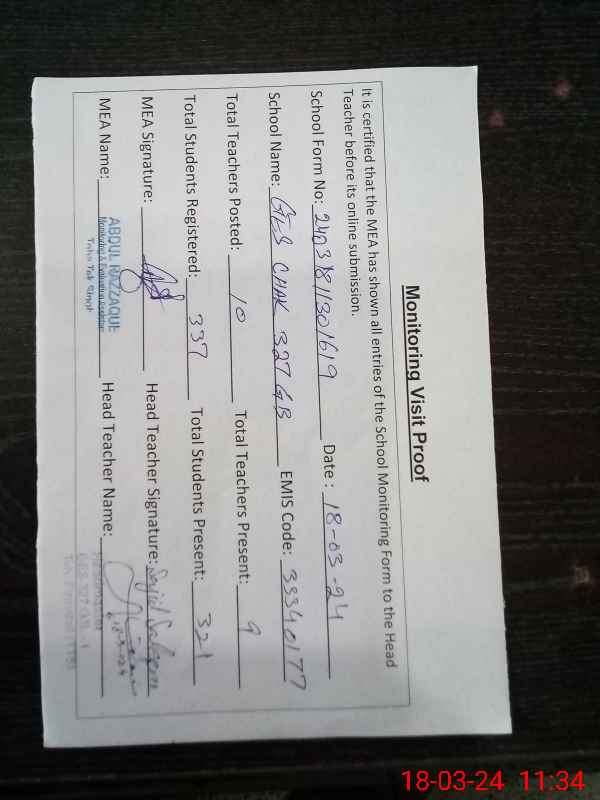 Monitoring Visit Proof
It is certified that the MEA has shown all entries of the School Monitoring Form to the Head
Teacher before its online submission.
School Form No: 240318/1301619 Date : 18-03-24
School Name: GES CHAK 327 GB EMIS Code: 33340177
Total Teachers Posted: 10 Total Teachers Present: 9
Total Students Registered: 337 Total Students Present: 321
MEA Signature: Head Teacher Signature: Sajid Saleem
MEA Name: ABDUL RAZZAQUE Head Teacher Name:
Monitoring & Evaluation Assistant
Toba Tek Singh
Headmaster
18-03-24 11:34